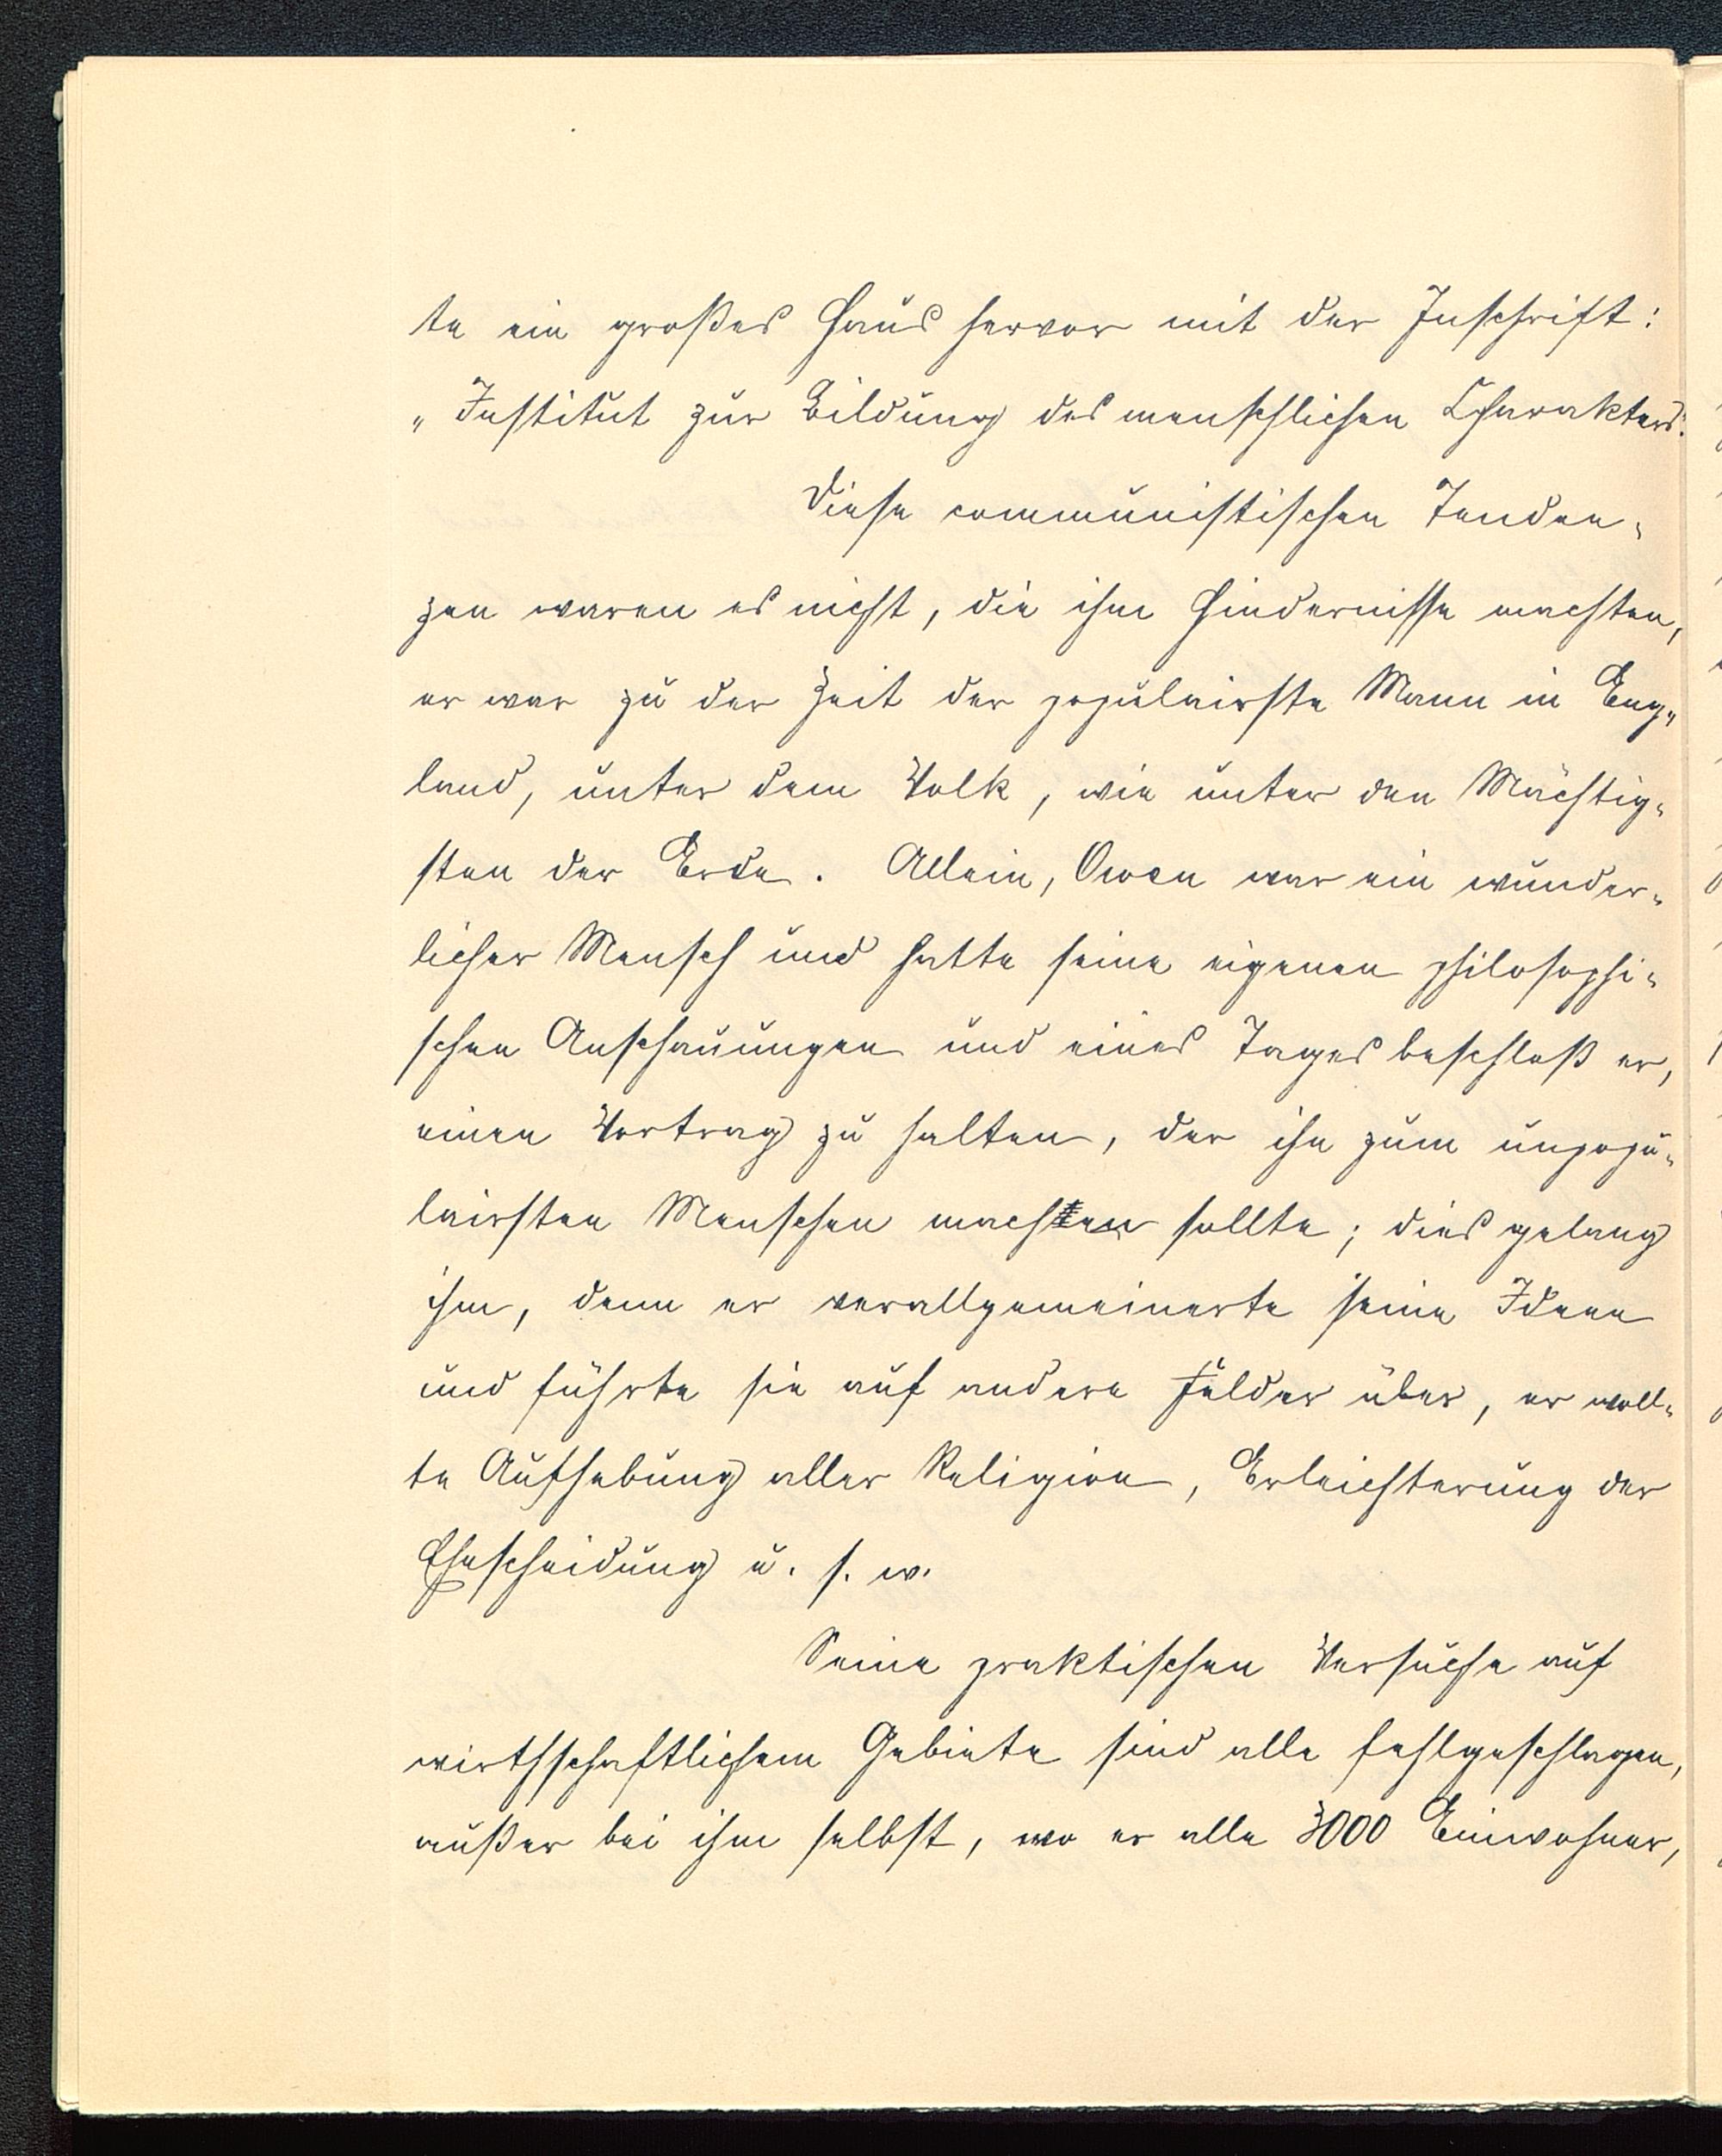 te ein großes Haus hervor mit der Inschrift:
„Institut zur Bildung des menschlichen Charakters."
Diese communistischen Tenden-
zen waren es nicht, die ihm Hindernisse machten,
er war zu der Zeit der populairste Mann in Eng-
land, unter dem Volk, wie unter den Mächtig-
sten der Erde. Allein, Owen war ein wunder-
licher Mensch und hatte seine eigenen philosophi-
schen Anschauungen und eines Tages beschloß er,
einen Vortrag zu halten, der ihn zum unpopu-
lairsten Menschen machen sollte; dies gelang
ihm, denn er verallgemeinerte seine Ideen
und führte sie auf andere Felder über, er woll-
te Aufhebung aller Religion, Erleichterung der
Ehescheidung u. s. w.
Seine praktischen Versuche auf
wirthschaftlichem Gebiete sind alle fehlgeschlagen,
außer bei ihm selbst, wo er alle 3000 Einwohner,